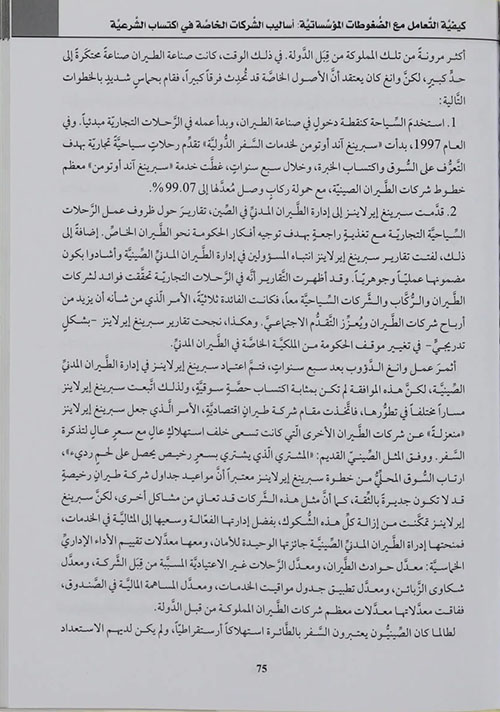 كيفيَّة التَّعامل مع الضُّغوطات المؤسّساتيَّة: أساليب الشَّركات الخاصَّة في اكتساب الشَّرعيَّة
أكثر مرونةً من تلك المملوكة من قِبَل الدَّولة. في ذلك الوقت، كانت صناعة الطيران صناعة محتكَرة إلى
حدٍّ كبيرٍ، لكنَّ وانغ كان يعتقد أنَّ الأصول الخاصَّة قد تُحدِث فرقاً كبيراً، فقام بحماسٍ شديدٍ بالخطوات
التَّالية:
1. استخدَمَ السِّياحة كنقطة دخولٍ في صناعة الطَّيران، وبدأ عمله في الرَّحلات التجاريَّة مبدئياً. وفي
العام 1997، بدأت «سبرينغ آند أوتومن لخدمات السَّفر الدُّوليَّة» تقدِّم رحلاتٍ سياحيَّةً تجاريَّة بهدف
التَّعرُّف على السُّوق واكتساب الخبرة، وخلال سبع سنواتٍ، غطَّت خدمة «سبرينغ آند أوتومن» معظم
خطوط شركات الطَّيران الصينيَّة، مع حمولة ركابٍ وصل مُعدَّلها إلى 99.07 %.
2. قدَّمت سبرينغ إيرلاينز إلى إدارة الطَّيران المدنيِّ في الصِّين، تقاريرَ حول ظروف عمل الرَّحلات
السياحيَّة التجاريَّة مع تغذيةٍ راجعةٍ بهدف توجيه أفكار الحكومة نحو الطَّيران الخاصِّ. إضافةً إلى
ذلك، لفتت تقارير سبرينغ إيرلاينز انتباه المسؤولين في إدارة الطَّيران المدنيِّ الصِّينيَّة وأشادوا بكون
مضمونها عمليّاً وجوهريّاً. وقد أظهرت التَّقارير أنَّه في الرَّحلات التجاريَّة تحقَّقت فوائد لشركات
الطَّيران والرُّكَّاب والشَّركات السِّياحيَّة معاً، فكانت الفائدة ثلاثيَّةً، الأمر الَّذي من شأنه أن يزيد من
أرباح شركات الطَّيران ويُعزِّز التَّقدُّم الاجتماعيَّ. وهكذا، نجحت تقارير سبرينغ إيرلاينز -بشكلٍ
تدريجيٍّ- في تغيير موقف الحكومة من الملكيَّة الخاصَّة في الطَّيران المدنيِّ.
أثمرَ عمل وانغ الدَّؤوب بعد سبع سنواتٍ، فتمَّ اعتماد سبرينغ إيرلاينز في إدارة الطَّيران المدنيِّ
الصِّينيَّة، لكنَّ هذه الموافقة لم تكن بمثابة اكتساب حصَّةٍ سوقيَّةٍ، ولذلك اتَّبعت سبرينغ إيرلاينز
مساراً مختلفاً في تطوُّرها، فاتَّخذت مقام شركة طيرانٍ اقتصاديَّةٍ، الأمر الَّذي جعل سبرينغ إيرلاينز
«منعزلةً» عن شركات الطَّيران الأخرى الَّتي كانت تسعى خلف استهلاكٍ عالٍ مع سعرٍ عالٍ لتذكرة
السَّفر. ووفق المثل الصِّينيِّ القديم: «المشتري الَّذي يشتري بسعرٍ رخيصٍ يحصل على لحمٍ رديء»،
ارتاب السُّوق المحلِّيُّ من خطوة سبرينغ إيرلاينز معتبراً أنَّ مواعيد جداول شركة طيرانٍ رخيصةٍ
قد لا تكون جديرةً بالثِّقة، كما أنَّ مثل هذه الشَّركات قد تعاني من مشاكل أخرى، لكنَّ سبرينغ
إيرلاينز تمكَّنت من إزالة كلِّ هذه الشُّكوك، بفضل إدارتها الفعَّالة وسعيها إلى المثاليَّة في الخدمات،
فمنحتها إدراة الطَّيران المدنيِّ الصِّينيَّة جائزتها الوحيدة للأمان، ومعها معدَّلات تقييم الأداء الإداريِّ
الخماسيَّة: معدَّل حوادث الطَّيران، ومعدَّل الرَّحلات غير الاعتياديَّة المسبَّبة من قِبَل الشَّركة، ومعدَّل
شكاوى الزَّبائن، ومعدَّل تطبيق جدول مواقيت الخدمات، ومعدَّل المساهمة الماليَّة في الصَّندوق،
ففاقت معدَّلاتها معدلات معظم شركات الطَّيران المملوكة من قبل الدَّولة.
لطالما كان الصِّينيُّون يعتبرون السَّفر بالطَّائرة استهلاكاً أرستقراطيّاً، ولم يكن لديهم الاستعداد
75